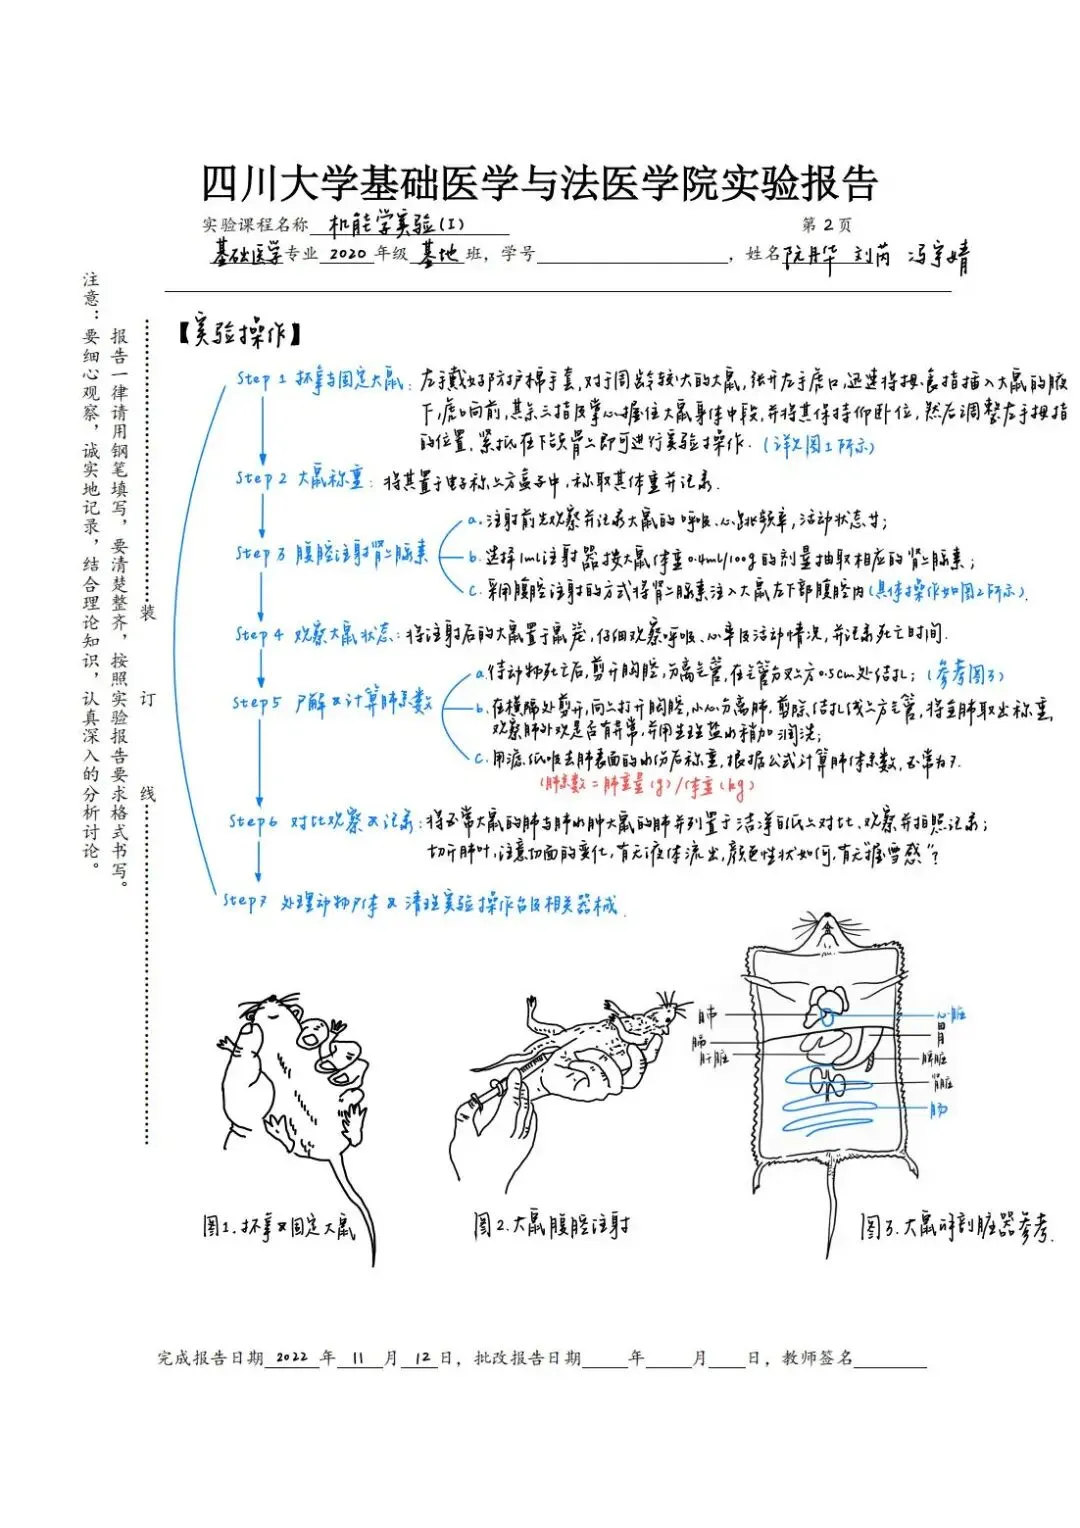 四川大学基础医学与法医学院实验报告
实验课程名称 机能学实验(I) 第 2 页
基础医学专业 2020 年级 基地 班，学号 ，姓名 阮丹华 刘芮 冯宇婧
注意：要细心观察，诚实地记录，结合理论知识，认真深入的分析讨论。
报告一律请用钢笔填写，要清楚整齐，按照实验报告要求格式书写。
装 订 线
【实验操作】
Step 1 抓拿与固定大鼠：左手戴好防护棉手套，对于周龄较大的大鼠，张开左手虎口，迅速将拇、食指插入大鼠的腋
下，虎口向前，其余三指及掌心握住大鼠身体中段，并将其保持仰卧位，然后调整左手拇指
的位置，紧抵在下颌骨上即可进行实验操作。（详见图1所示）
Step 2 大鼠称重：将其置于电子称上方盒子中，称取其体重并记录.
Step 3 腹腔注射肾上腺素
a. 注射前先观察并记录大鼠的呼吸、心跳频率，活动状态等；
b. 选择1ml注射器按大鼠体重0.4ml/100g的剂量抽取相应的肾上腺素；
c. 采用腹腔注射的方式将肾上腺素注入大鼠左下部腹腔内（具体操作如图2所示）.
Step 4 观察大鼠状态：将注射后的大鼠置于鼠笼，仔细观察呼吸、心率及活动情况，并记录死亡时间.
Step 5 尸解&计算肺系数
a. 待动物死亡后，剪开胸腔，分离气管，在气管分叉上方0.5cm处结扎；（参考图3）
b. 在横膈处剪开，向上打开胸腔，小心分离肺，剪除结扎线上方气管，将全肺取出称重，
观察肺外观是否有异常，并用生理盐水稍加润洗；
c. 用滤纸吸去肺表面的水份后称重，根据公式计算肺体系数，正常为7.
(肺系数=肺重量(g)/体重(kg)
Step 6 对比观察&记录：将正常大鼠的肺与肺水肿大鼠的肺并列置于洁净白纸上对比、观察并拍照记录；
切开肺叶，注意切面的变化，有无液体流出，颜色性状如何，有无"握雪感"？
Step 7 处理动物尸体&清理实验操作台及相关器械.
肺
膈
肝脏
心脏
胃
脾脏
肾脏
肠
图1. 抓拿&固定大鼠
图2. 大鼠腹腔注射
图3. 大鼠解剖脏器参考.
完成报告日期 2022 年 11 月 12 日，批改报告日期 年 月 日，教师签名